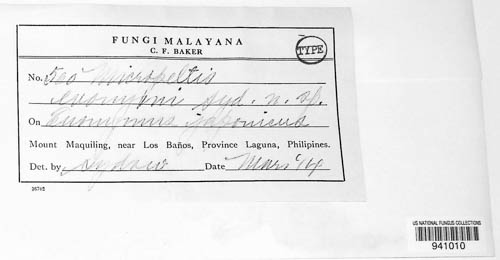 FUNGI MALAYANA
C. F. BAKER
TYPE
No. 500 Micropeltis
euonymi Syd. n. sp.
On Euonymus japonicus
Mount Maquiling, near Los Baños, Province Laguna, Philipines.
Det. by Sydow Date Mar. '14
26762
US NATIONAL FUNGUS COLLECTIONS
941010